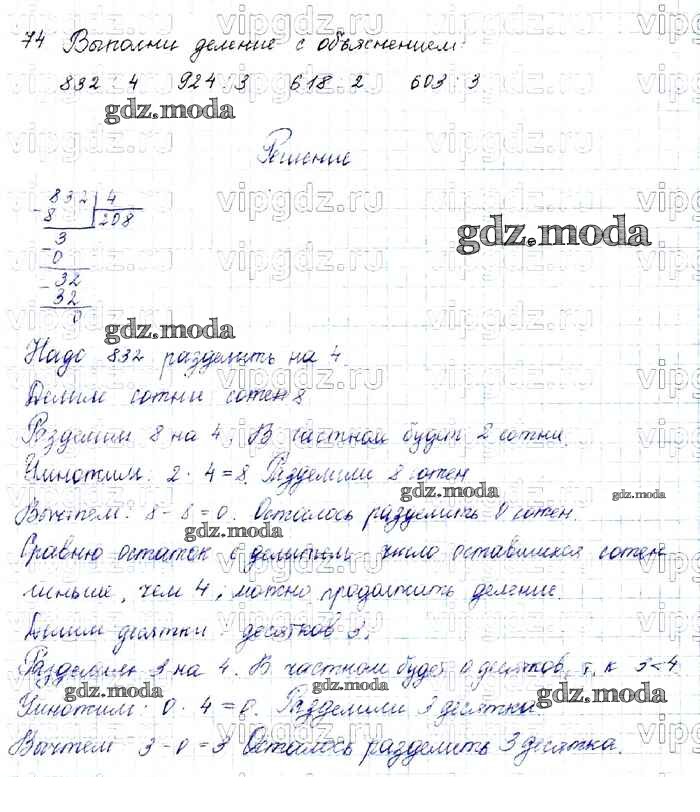 74 Выполни деление с объяснением:
832 : 4 924 : 3 618 : 2 603 : 3
gdz.moda
Решение
832 4
- 8 208
3
- 0
- 32
32
0
gdz.moda
gdz.moda
Надо 832 разделить на 4.
Делим сотни сотен 8
Разделим 8 на 4. В частном будет 2 сотни.
Умножим: 2 · 4 = 8. Разделили 8 сотен
gdz.moda
Вычтем: 8 - 8 = 0. Осталось разделить 0 сотен.
gdz.moda
Сравню остаток с делителем число оставшихся сотен
меньше, чем 4, можно продолжить деление.
Делим десятки : десятков 3.
Разделим 3 на 4. В частном будет 0 десятков, т. к 3<4
gdz.moda
gdz.moda
Умножим: 0 · 4 = 0. Разделили 3 десятка.
Вычтем 3 - 0 = 3 Осталось разделить 3 десятка.
vipgdz.ru